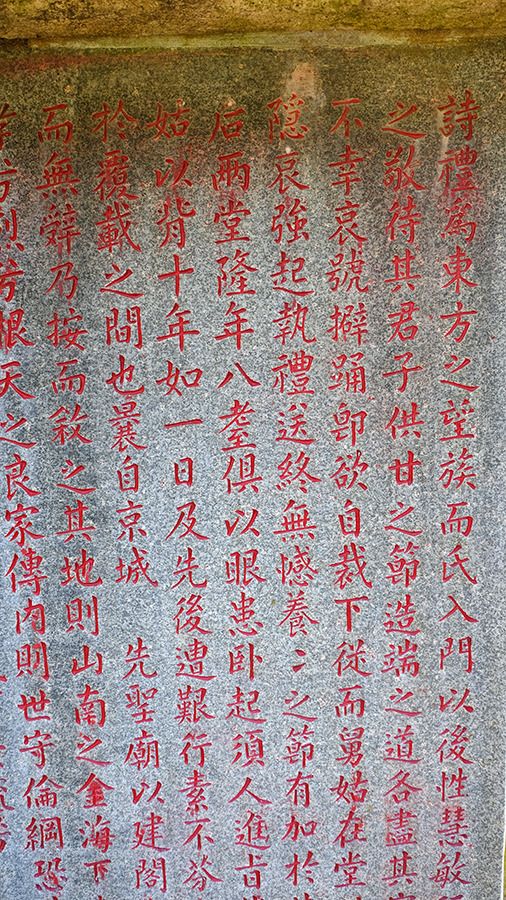 詩禮爲東方之望族而氏入門以後性慧敏
之敬待其君子供甘之節造端之道各盡其
不幸哀號擗踊卽欲自裁下從而舅姑在堂
隱哀強起執禮送終無憾養〻之節有加於
后兩堂隆年八耋俱以眼患卧起須人進
姑以背十年如一日及先後遭艱行素不
於覆載之間也曩自京城 先聖廟以建閣
而無辭乃按而敘之其地則山南之金海下
芳根天之良家傳內則世守倫綱恐